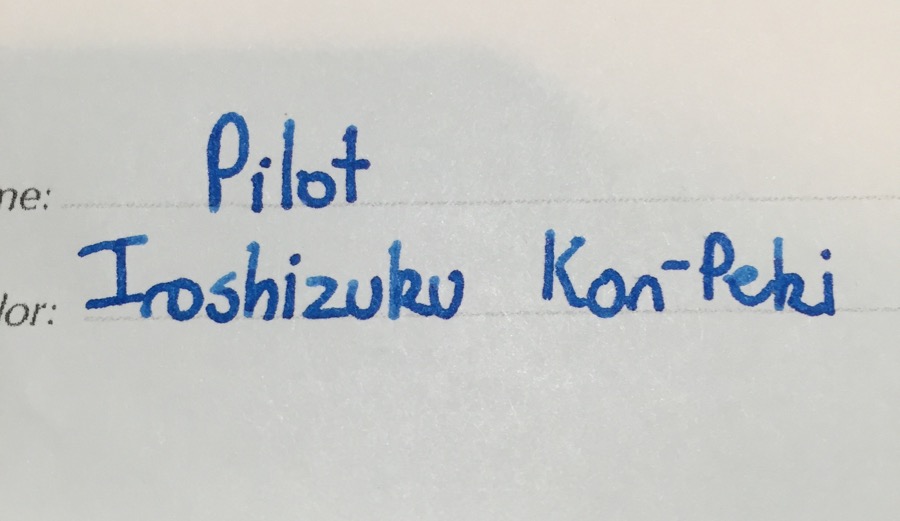 ne: Pilot
lor: Iroshizuku Kon-Peki